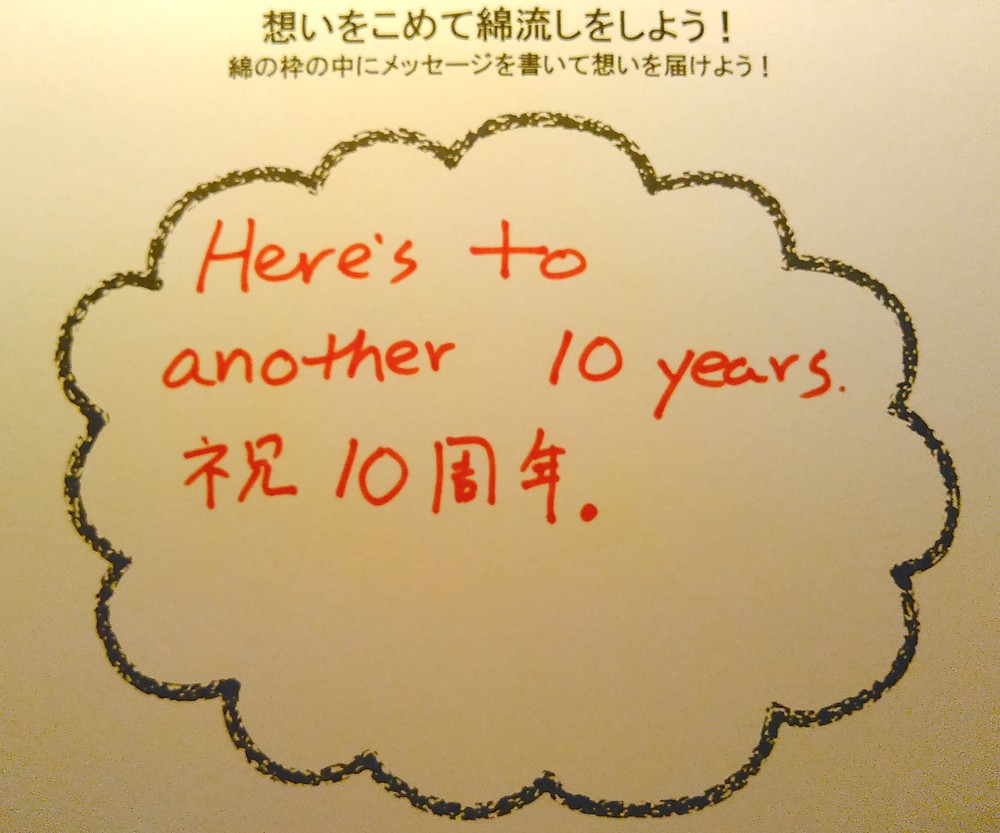 想いをこめて綿流しをしよう！
綿の枠の中にメッセージを書いて想いを届けよう！
Here's to
another 10 years.
祝10周年.